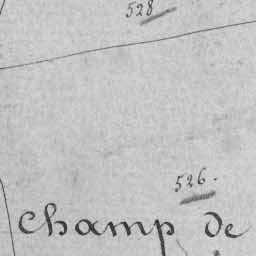 528
526.
champ de